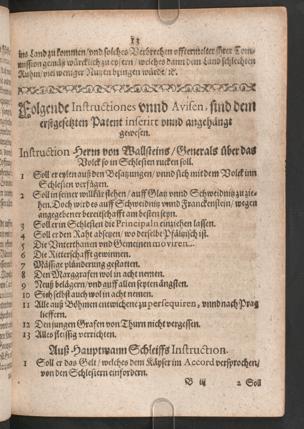 13
ins Land zu kommen/ vnd solches Verbrechen offermelter Ihrer Com-
mission gemäß würcklich zu eyfern/ welches dann dem Land schlechten
Ruhm/ viel weniger Nutzen bringen würde/ ꝛc.
Folgende Instructiones vnnd Avisen, sind dem
erstgesetzten Patent inserirt vnnd angehängt
gewesen.
Instruction Herrn von Wallsteins/ Generals über das
Volck so in Schlesien rucken soll.
1 Soll er eylen auß den Besatzungen/ vnnd sich mit dem Volck inn
Schlesien verfügen.
2 Soll in seiner willkür stehen/ auff Glatz vnnd Schweidnitz zu zie-
hen. Doch wird es auff Schweidnitz vnnd Franckenstein/ wegen
angegebener bereitschafft am besten seyn.
3 Soll er in Schlesien die Principaln einziehen lassen.
4 Soll er den Raht absetzen/ wo derselbe Pfältzisch ist.
5 Die Vnterthanen vnd Gemeinen moviren.
6 Die Ritterschafft gewinnen.
7 Mässige plünderung gestatten.
8 Den Marggrafen wol in acht nemen.
9 Neuß belägern/ vnd auff allen seyten ängsten.
10 Sich selbst auch wol in acht nemen.
11 Alle auß Böhmen entwichene zu persequiren, vnnd nach Prag
lieffern.
12 Den jungen Grafen von Thurn nicht vergessen.
13 Alles fleissig verrichten.
Auß Hauptmann Schleiffs Instruction.
1 Soll er das Gelt/ welches dem Käyser im Accord versprochen/
von den Schlesiern einfordern.
B iij 2 Soll